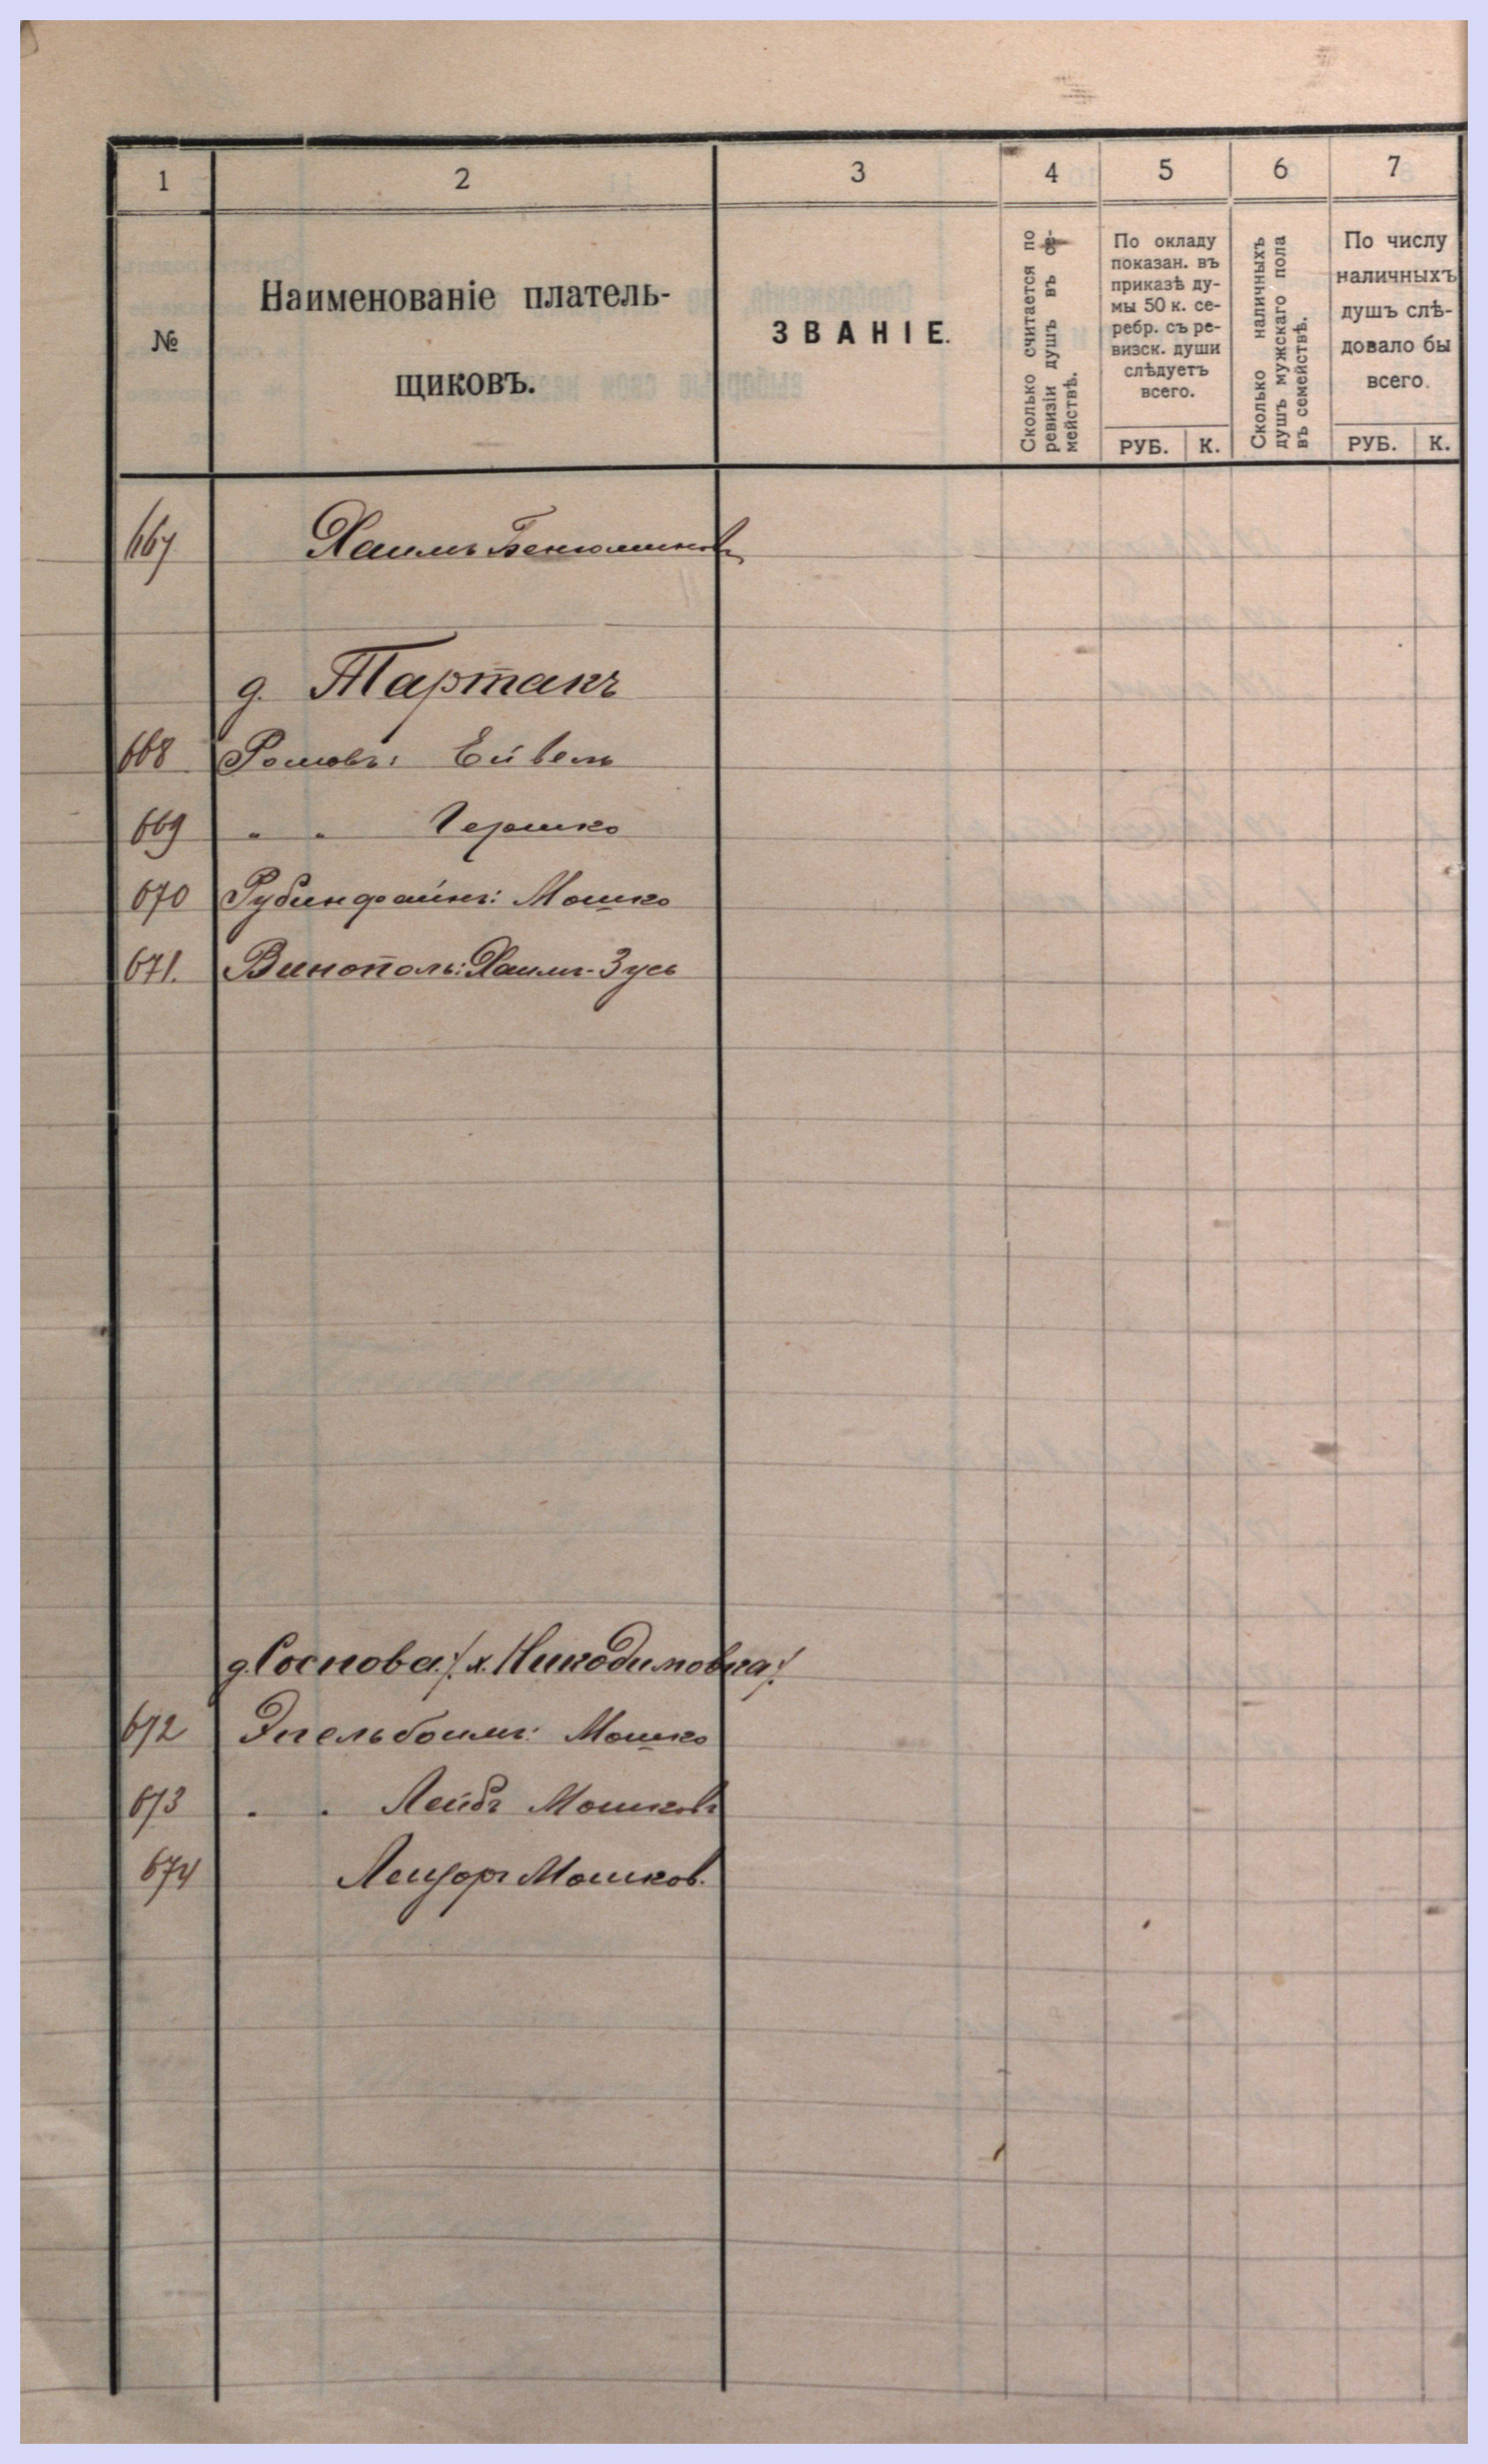 1 2 3 4 5 6 7
№
Наименованіе платель-
щиковъ.
ЗВАНІЕ.
Сколько считается по
ревизіи душъ въ се-
мействѣ.
По окладу
показан. въ
приказѣ ду-
мы 50 к. се-
ребр. съ ре-
визск. души
слѣдуетъ
всего.
РУБ. К.
Сколько наличныхъ
душъ мужскаго пола
въ семействѣ.
По числу
наличныхъ
душъ слѣ-
довало бы
всего.
РУБ. К.
667 Хаимъ Бенюминовъ
д. Тартакъ
668 Ейвель
669 " " Гершко
670 Рубинфайнъ: Мошко
671. Винополь: Хаимъ-Зусь
д. Соснова /: х. Никодимовка :/
672 Эпельбоимъ: Мошко
673 " " Лейбъ Мошковъ
674 Мошков.